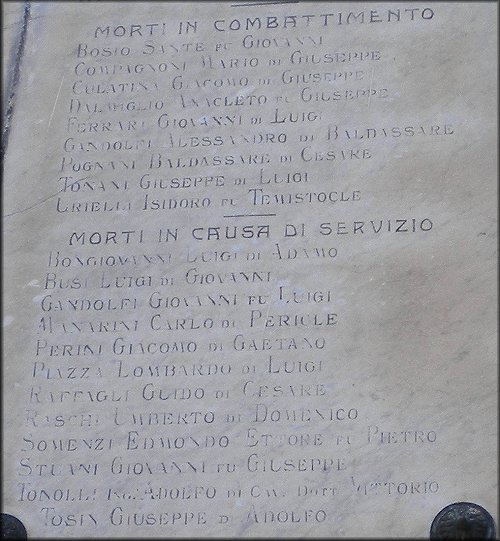 MORTI IN COMBATTIMENTO
BOSIO SANTE FU GIOVANNI
COMPAGNONI MARIO DI GIUSEPPE
CULATINA GIACOMO DI GIUSEPPE
DALMIGLIO ANACLETO FU GIUSEPPE
FERRARI GIOVANNI DI LUIGI
GANDOLFI ALESSANDRO DI BALDASSARE
POGNANI BALDASSARE DI CESARE
TONANI GIUSEPPE DI LUIGI
URIELLI ISIDORO FU TEMISTOCLE
MORTI IN CAUSA DI SERVIZIO
BONGIOVANNI LUIGI DI ADAMO
BUSI LUIGI DI GIOVANNI
GANDOLFI GIOVANNI FU LUIGI
MANARINI CARLO DI PERICLE
PERINI GIACOMO DI GAETANO
PIAZZA LOMBARDO DI LUIGI
RAFFAGLI GUIDO DI CESARE
RASCHI UMBERTO DI DOMENICO
SOMENZI EDMONDO ETTORE FU PIETRO
STUANI GIOVANNI FU GIUSEPPE
TONOLLI ING. ADOLFO DI CAV. DOTT. VITTORIO
TOSIN GIUSEPPE DI ADOLFO